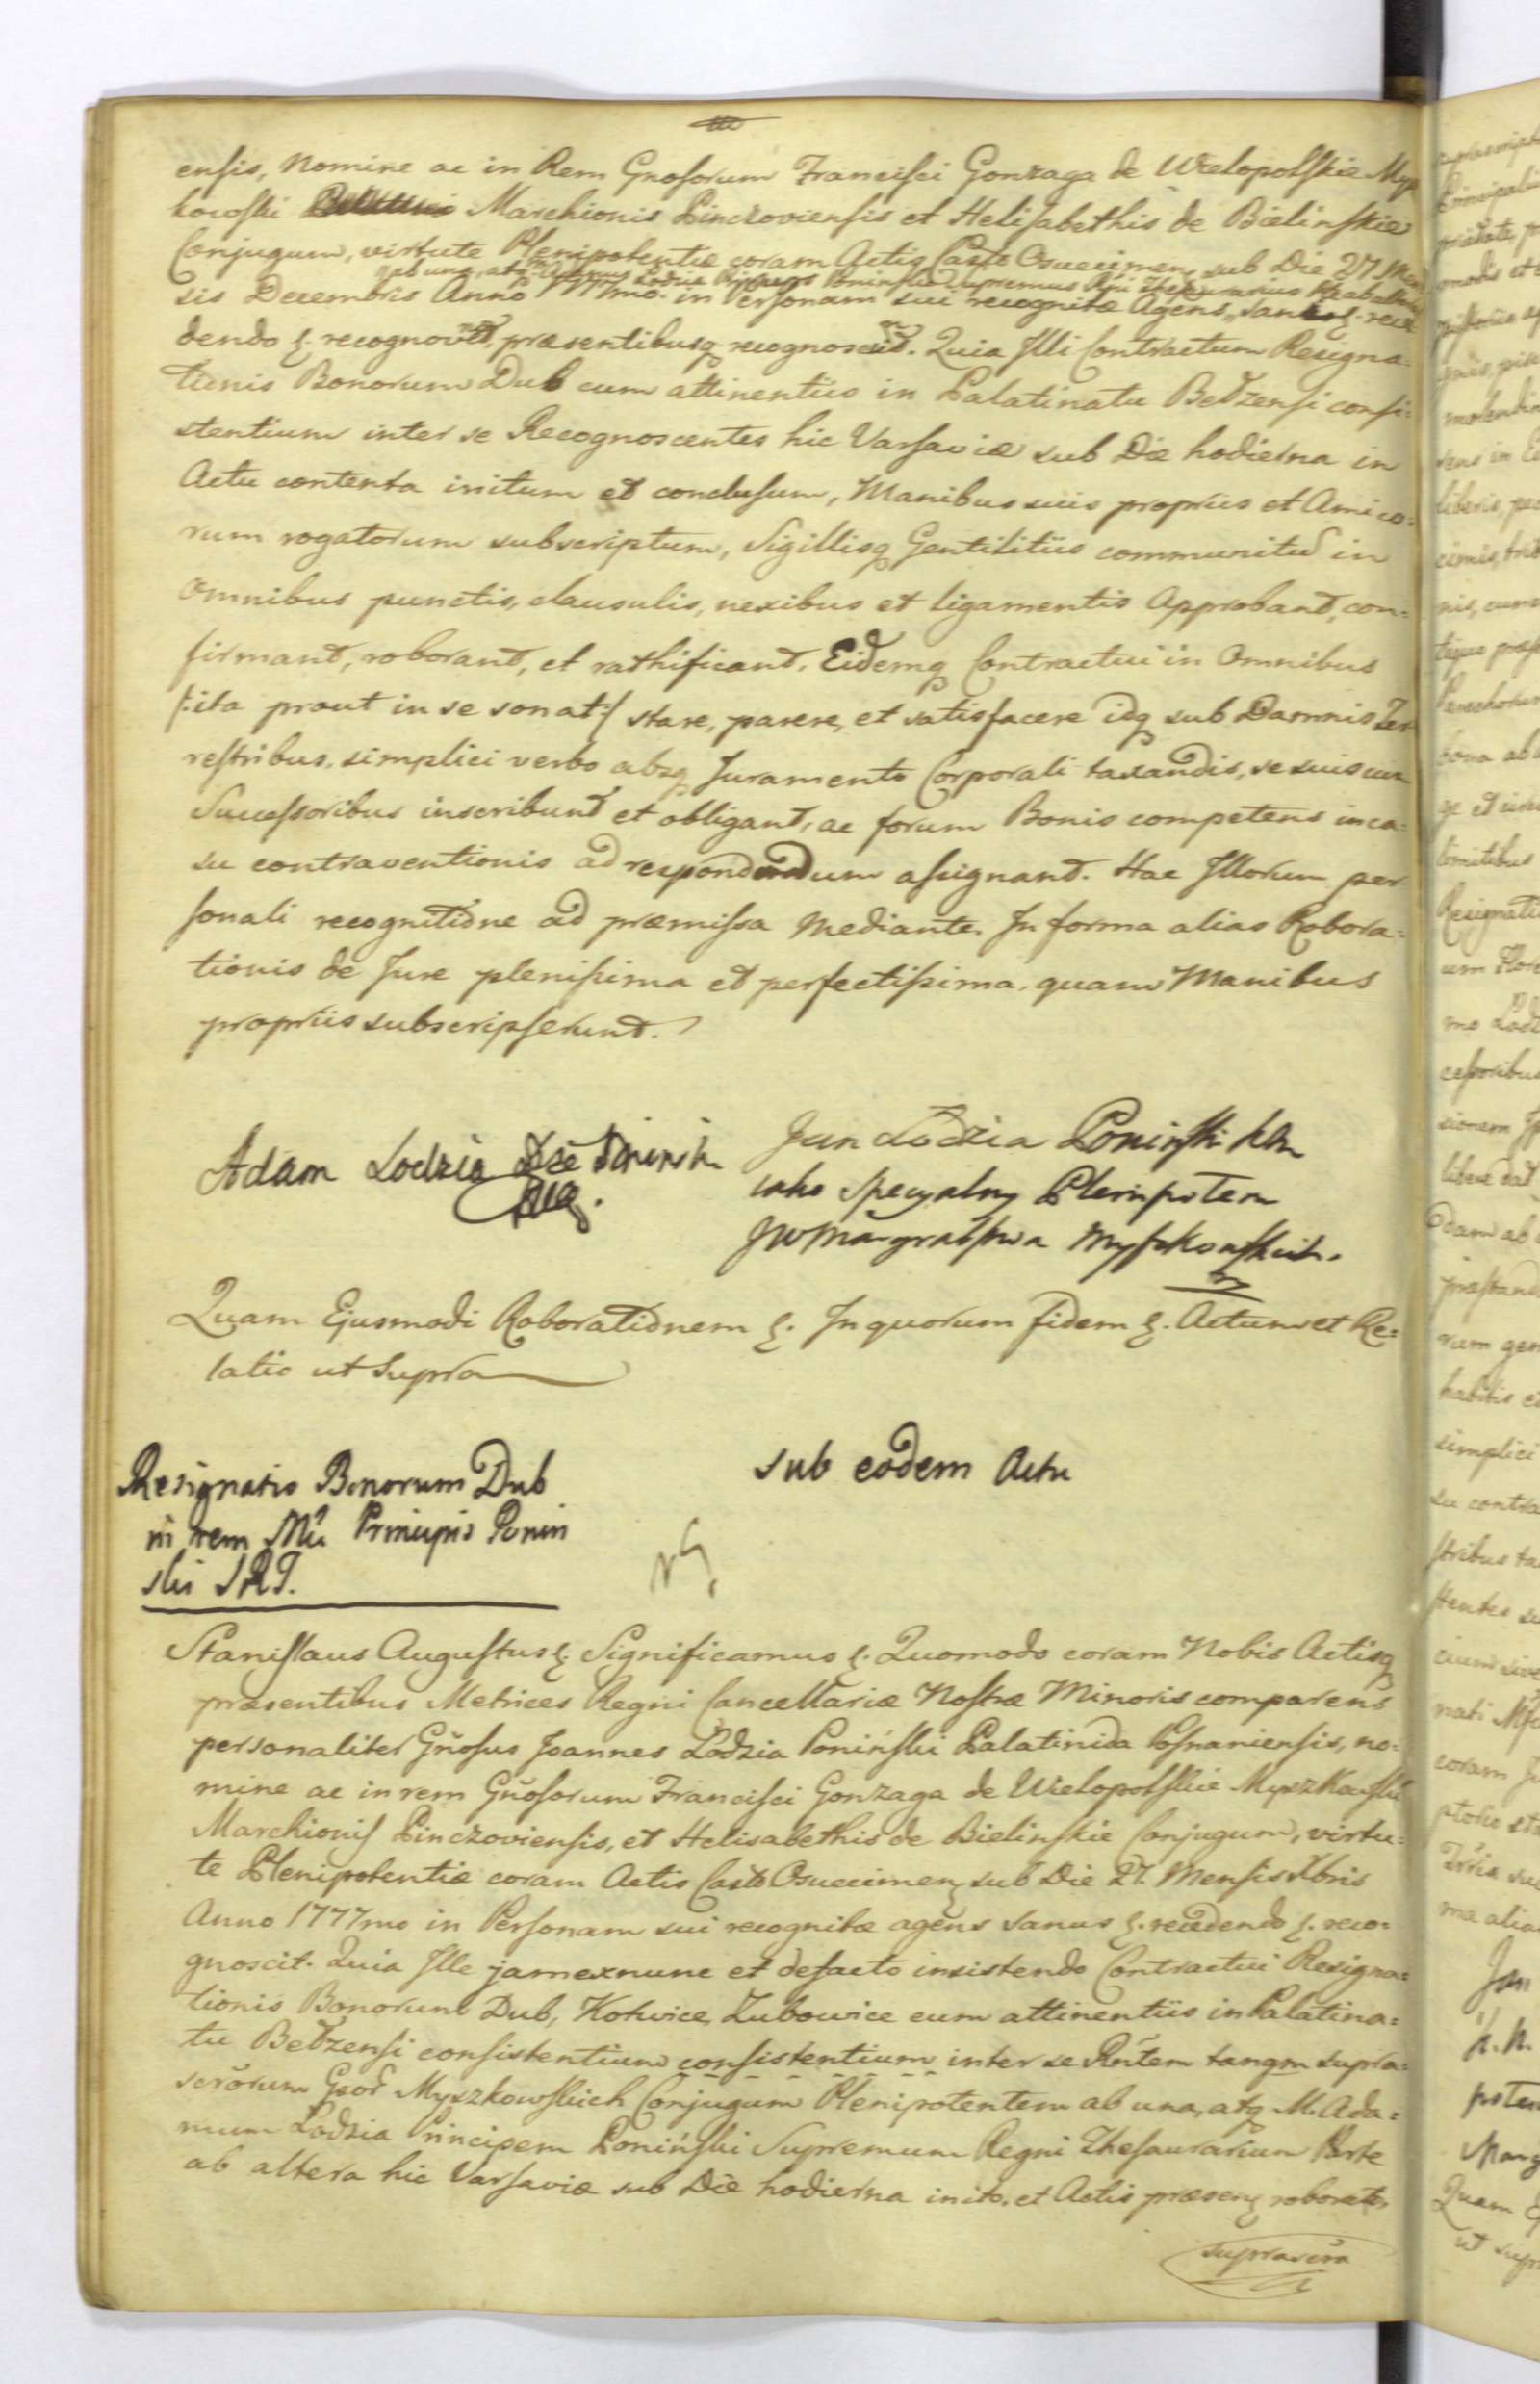 ensis, Nomine ac in Rem Gnosorum Francisci Gonzaga de Wielopolskie Mysz
kowski Marchionis Pinczoviensis et Helisabethis de Bielinskie
Conjugum, virtute Plenipotentiæ coram Actis Castr Osviecimen sub Die 27 Men
ab una, atq Adamus Lodzia Princeps Poninski Supremus Rgni Thesaurarius Parte ab altera
sis Decembris Anno 1777mo. in Personam sui recognitæ Agens, Sani &. rece
dendo &. recognovert, præsentibusq recognoscunt. Quia Illi Contractum Resigna-
tionis Bonorum Dub cum attinentiis in Palatinatu Bełzensi consi-
stentium inter se Recognoscentes hic Varsaviæ sub Die hodierna in
Actu contenta initum et conclusum, Manibus suis propriis et Amico-
rum rogatorum subscriptum, Sigillisq Gentilitiis communitum in
Omnibus punctis, clausulis, nexibus et ligamentis Approbant, con-
firmant, roborant, et rathificant. Eidemq Contractui in Omnibus
/:ita prout in se sonat:/ stare, parere, et satisfacere idq sub Damnis Ter
restribus, simplici verbo absq Juramento Corporali taxandis, se suis cum
Successoribus inscribunt et obligant, ac forum Bonis competens in ca-
su contraventionis ad respondendum assignant. Hac Illorum per
sonali recognitione ad præmissa Mediante. In forma alias Robora-
tionis de Jure plenissima et perfectissima, quam Manibus
propriis subscripserunt.
Adam Lodzia Xże Poninski
Jan Łodzia Poninski
iako Specyalny Plenipotent
JW Margrabstwa Myszkowskich.
Quam Ejusmodi Roborationem &. In quorum fidem &. Actum et Re-
latio ut Supra
Resignatio Bonorum Dub
in rem Mci Principis Ponin
ski SRT.
sub eodem Actu
Stanislaus Augustus &. Significamus &. Quomodo coram Nobis Actisq
præsentibus Metrices Regni Cancellariæ Nostræ Minoris comparens
personaliter Gnosus Joannes Łodzia Poniński Palatinida Posnaniensis, no-
mine ac in rem Gnosorum Francisci Gonzaga de Wielopolskie Myszkowski
Marchionis Pinczoviensis, et Helisabethis de Bielinskie Conjugum, virtu-
te Plenipotentiæ coram Actis Castr Osviecimen sub Die 27. Mensis Xbris
Anno 1777mo in Personam sui recognitæ agens sanus &. recedendo &. reco-
gnoscit. Quia Ille jam ex nunc et de facto insistendo Contractui Resigna-
tionis Bonorum Dub, Kotwice, Zubowice cum attinentiis in Palatina-
tu Bełzensi consistentium consistentium inter se Rntem tanqm supra-
scrorum Gsor Myszkowskich Conjugum Plenipotentem ab una, atq M. Ada-
mum Lodzia Principem Poniński Supremum Regni Thesaurarium Parte
ab altera hic Varsaviæ sub Die hodierna inito, et Actis præsen roborato,
suprascra